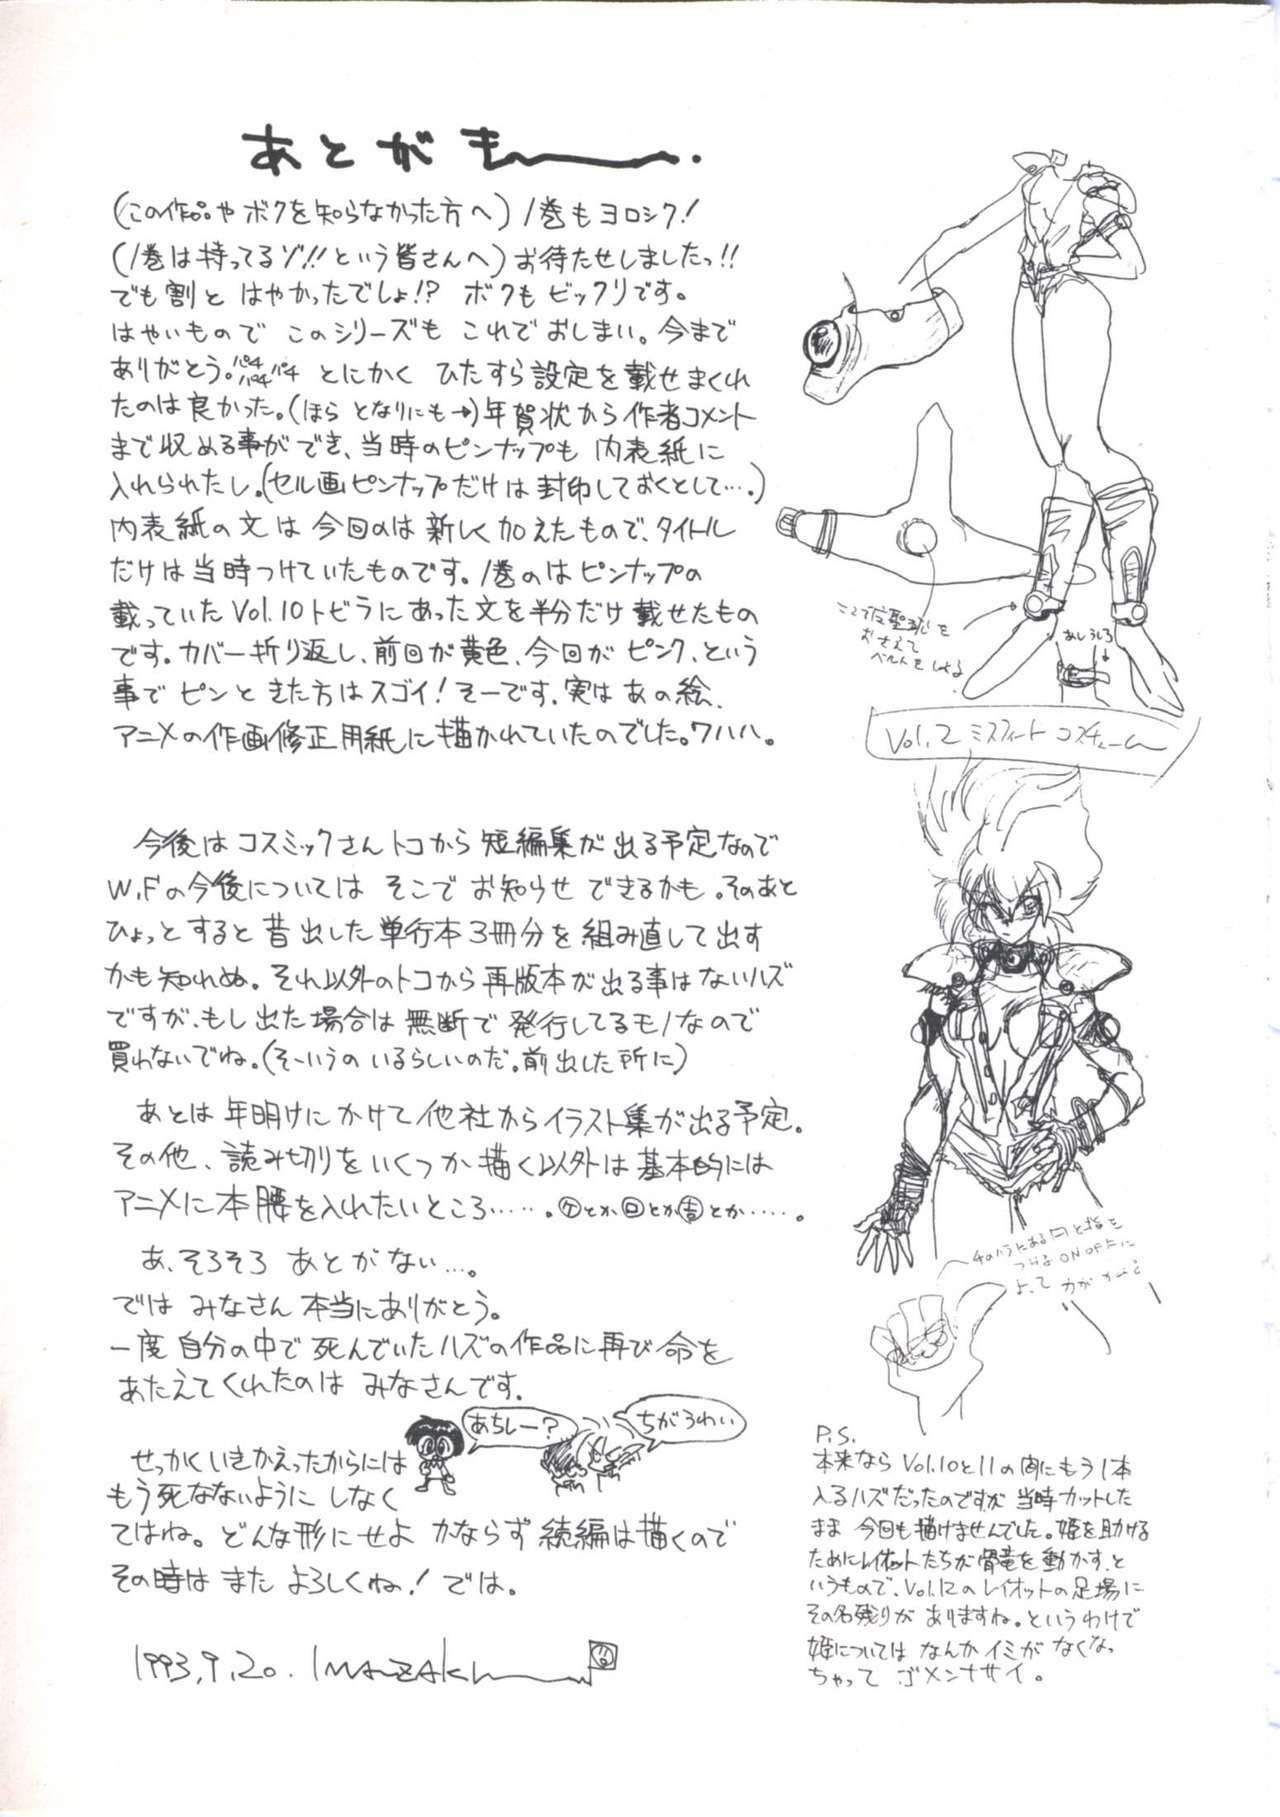 あとがきー.
(この作品やボクを知らなかった方へ)1巻もヨロシク!
(1巻は持ってるゾ!!という皆さんへ)お待たせしましたっ!!
でも割と はやかったでしょ!? ボクも ビックリです。
はやいもので このシリーズも これで おしまい。今まで
ありがとう。パチパチパチ とにかく ひたすら設定を載せまくれ
たのは良かった。(ほら となりにも→)年賀状から作者コメント
まで収める事ができ、当時のピンナップも 内表紙に
入れられたし。(セル画ピンナップだけは封印しておくとして…。)
内表紙の文は今回のは新しく加えたもので、タイトル
だけは当時つけていたものです。1巻のはピンナップの
載っていたVol.10トビラにあった文を半分だけ載せたもの
です。カバー折り返し、前回が黄色、今回がピンク、という
事でピンときた方はスゴイ!そーです、実はあの絵、
アニメの作画修正用紙に描かれていたのでした。ワハハ。
今後はコスミックさんトコから短編集が出る予定なので
W.Fの今後については そこで お知らせ できるかも。そのあと
ひょっとすると昔出した単行本3冊分を組み直して出す
かも知れぬ。それ以外のトコから再版本が出る事はないハズ
ですが、もし出た場合は無断で発行してるモノなので
買わないでね。(そーいうの いるらしいのだ。前出した所に)
あとは年明けにかけて他社からイラスト集が出る予定。
その他、読み切りをいくつか描く以外は基本的には
アニメに本腰を入れたいところ……。㋘とか㋺とか㊒とか……。
あ、そろそろ あとがない…。
では みなさん 本当にありがとう。
一度 自分の中で 死んでいたハズの作品に再び命を
あたえてくれたのは みなさんです。
あちしー?
ちがうわい
せっかくいきかえったからには
もう死なないように しなく
てはね。どんな形にせよ かならず続編は描くので
その時は また よろしくね! では。
1993.9.20. IMAZAKI
ここで
おさえて
あしうしろ
Vol.2 ミスフィート コスチューム
ON OFFに
よって 力が
P.S.
本来なら Vol.10と11の間にもう1本
入るハズだったのですが 当時カットした
まま 今回も描けませんでした。姫を助ける
ためにレイオットたちが骨竜を動かす、と
いうもので、Vol.12のレイオットの足場に
その名残りが ありますね。というわけで
姫については なんかイミが なくなっ
ちゃって ゴメンナサイ。